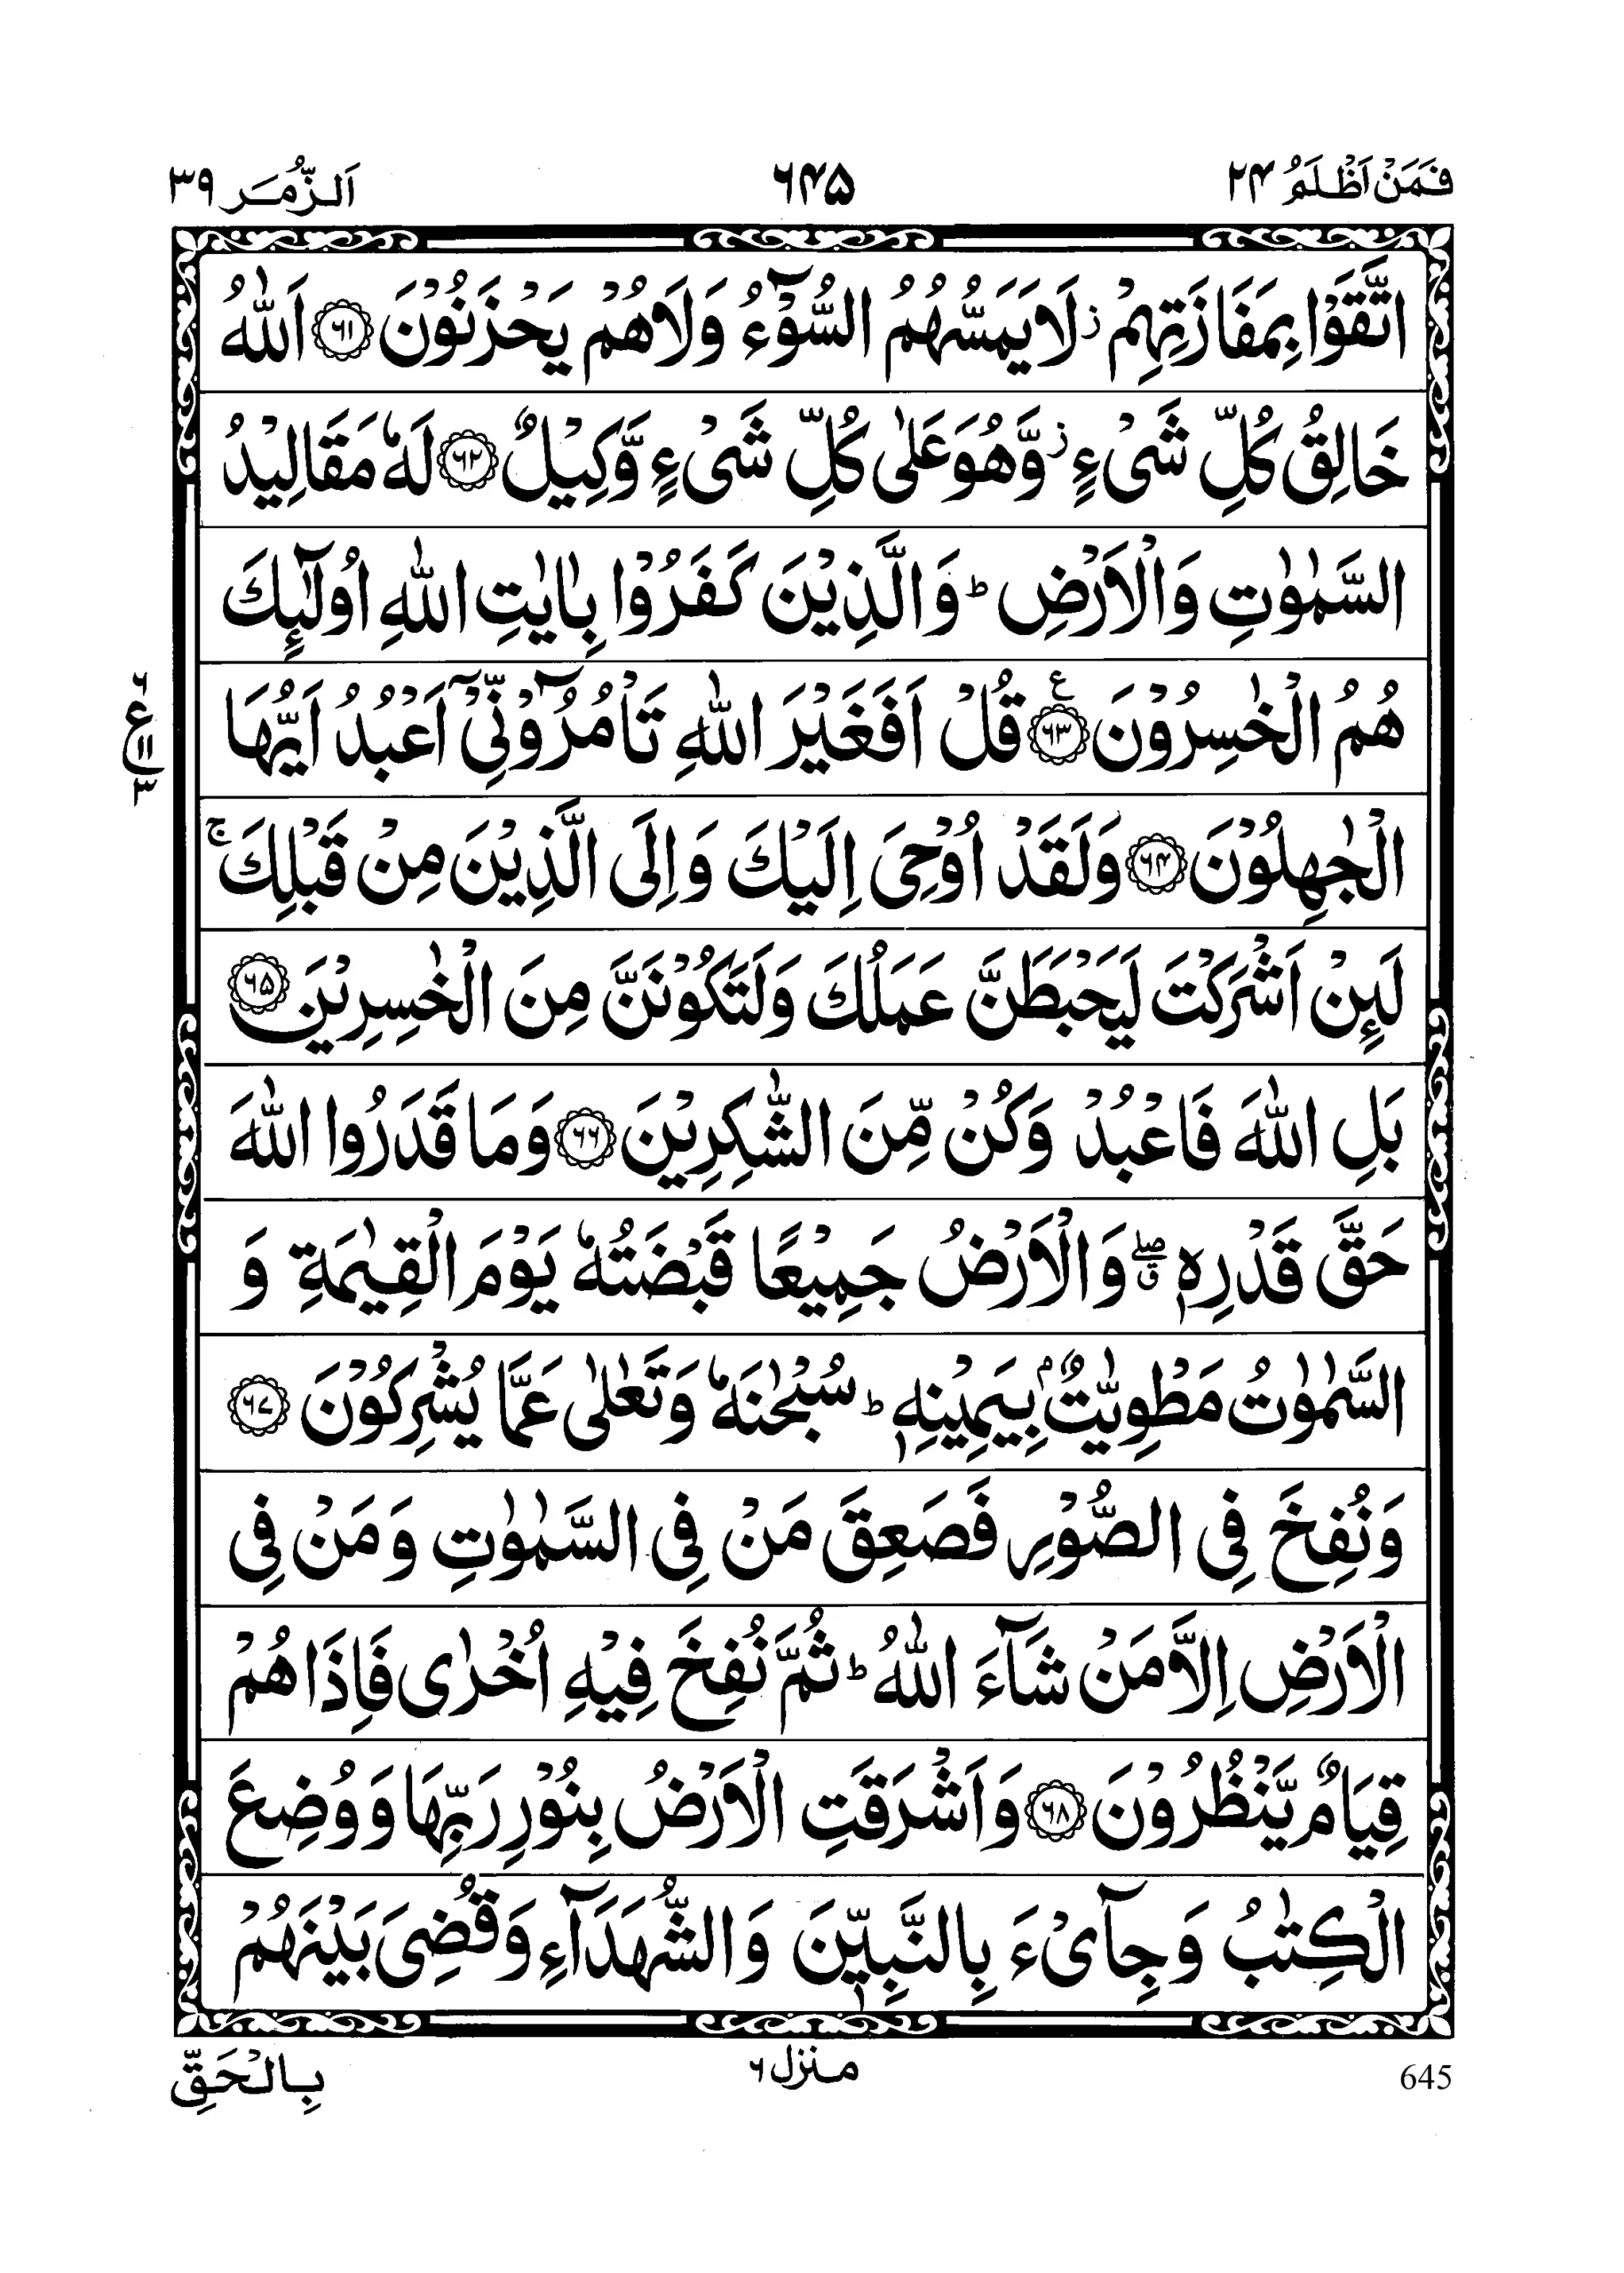 فَمَنْ اَظْلَمُ ٢٤ ٦٤٥ اَلزُّمَر ٣٩
اتَّقَوْا بِمَفَازَتِهِمْ ز لَا يَمَسُّهُمُ السُّوْٓءُ وَلَا هُمْ يَحْزَنُوْنَ ﴿٦١﴾ اَللّٰهُ
خَالِقُ كُلِّ شَىْءٍ ز وَّهُوَ عَلٰى كُلِّ شَىْءٍ وَّكِيْلٌ ﴿٦٢﴾ لَهٗ مَقَالِيْدُ
السَّمٰوٰتِ وَالْاَرْضِ ؕ وَالَّذِيْنَ كَفَرُوْا بِاٰيٰتِ اللّٰهِ اُولٰٓئِكَ
هُمُ الْخٰسِرُوْنَ ﴿٦٣﴾ ع قُلْ اَفَغَيْرَ اللّٰهِ تَاْمُرُوْٓنِّىْٓ اَعْبُدُ اَيُّهَا
٦ ع ١١ ٣
الْجٰهِلُوْنَ ﴿٦٤﴾ وَلَقَدْ اُوْحِىَ اِلَيْكَ وَاِلَى الَّذِيْنَ مِنْ قَبْلِكَ ۚ
لَئِنْ اَشْرَكْتَ لَيَحْبَطَنَّ عَمَلُكَ وَلَتَكُوْنَنَّ مِنَ الْخٰسِرِيْنَ ﴿٦٥﴾
بَلِ اللّٰهَ فَاعْبُدْ وَكُنْ مِّنَ الشّٰكِرِيْنَ ﴿٦٦﴾ وَمَا قَدَرُوا اللّٰهَ
حَقَّ قَدْرِهٖ ۖ ق وَالْاَرْضُ جَمِيْعًا قَبْضَتُهٗ يَوْمَ الْقِيٰمَةِ وَ
السَّمٰوٰتُ مَطْوِيّٰتٌۢ بِيَمِيْنِهٖ ؕ سُبْحٰنَهٗ وَتَعٰلٰى عَمَّا يُشْرِكُوْنَ ﴿٦٧﴾
وَنُفِخَ فِى الصُّوْرِ فَصَعِقَ مَنْ فِى السَّمٰوٰتِ وَمَنْ فِى
الْاَرْضِ اِلَّا مَنْ شَآءَ اللّٰهُ ؕ ثُمَّ نُفِخَ فِيْهِ اُخْرٰى فَاِذَا هُمْ
قِيَامٌ يَّنْظُرُوْنَ ﴿٦٨﴾ وَاَشْرَقَتِ الْاَرْضُ بِنُوْرِ رَبِّهَا وَوُضِعَ
الْكِتٰبُ وَجِآىْءَ بِالنَّبِيّٖنَ وَالشُّهَدَآءِ وَقُضِىَ بَيْنَهُمْ
645 منزل ٦ بِالْحَقِّ